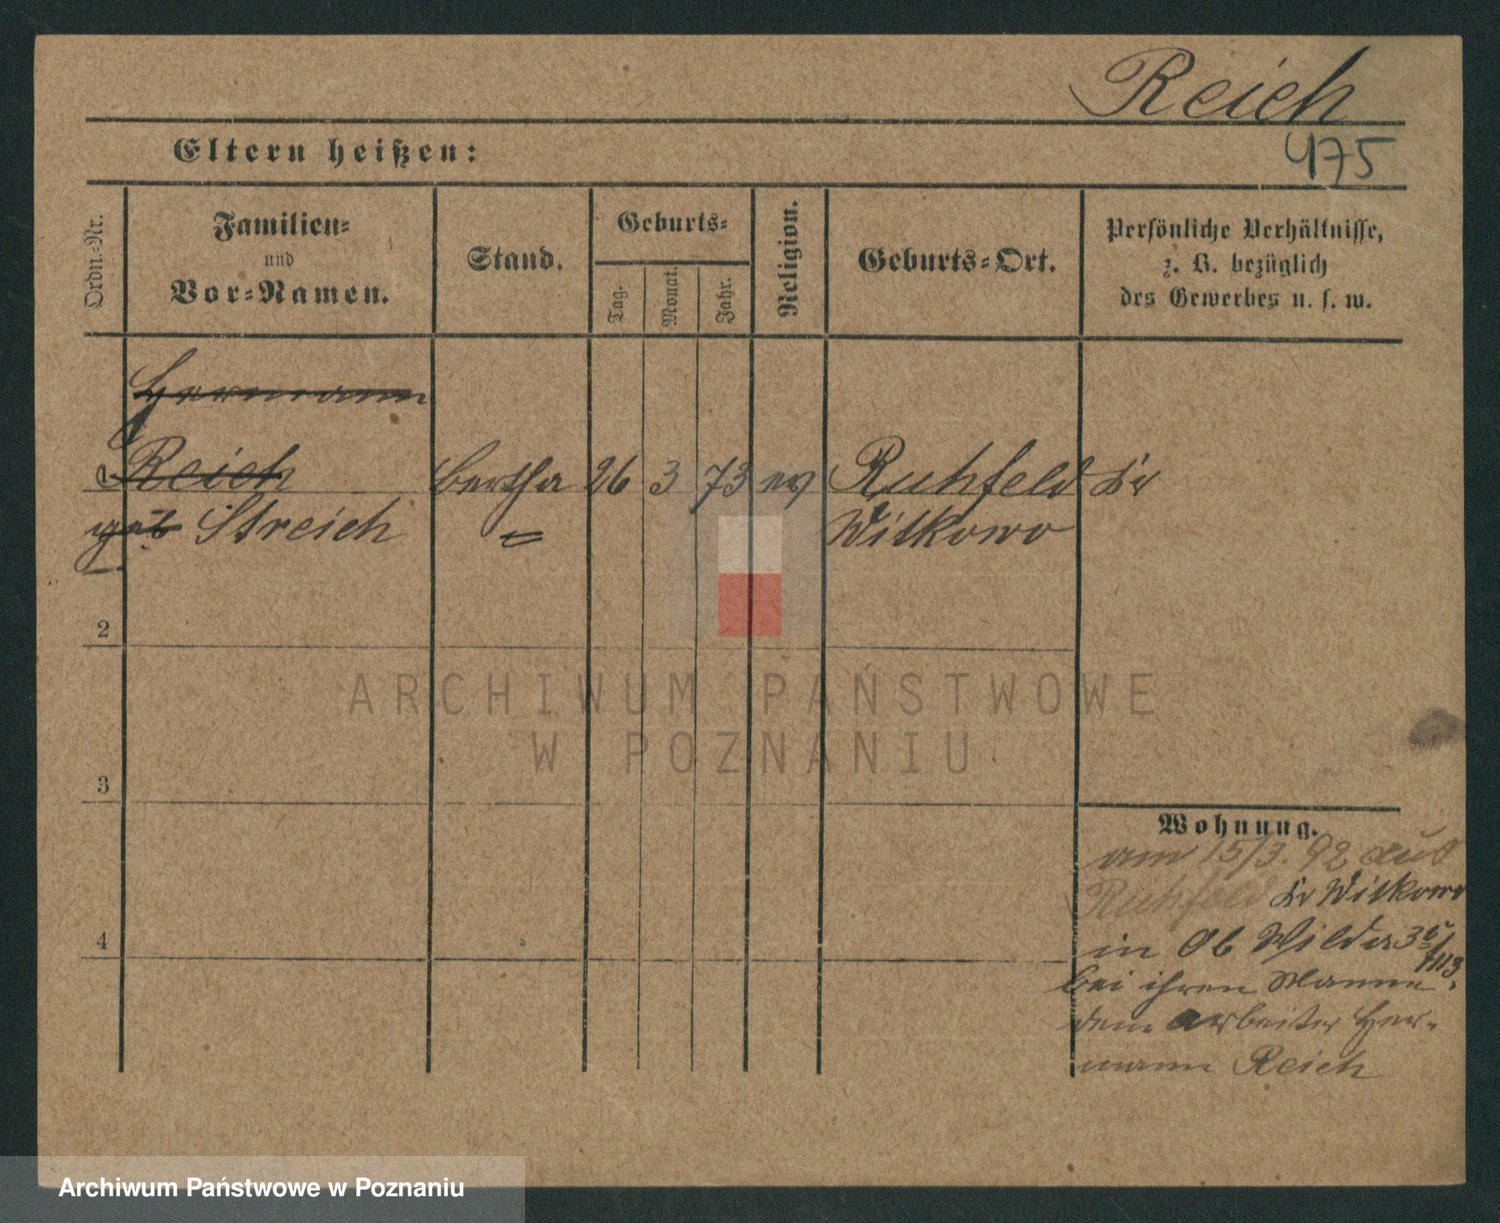 Reich
475
Eltern heißen:
Ordn.-Nr.
Familien-
und
Vor-Namen.
Stand.
Geburts-
Tag.
Monat.
Jahr.
Religion.
Geburts-Ort.
Persönliche Verhältnisse,
z. B. bezüglich
des Gewerbes u. s. w.
Hermann
1 Reich Bertha 26 3 73 ev Ruhfeld Kr
geb Streich = Witkowo
2
3
4
Wohnung.
am 15/3. 92 aus
Ruhfeld Kr Witkowo
in Ob Wilda
bei ihren Manne
dem Arbeiter Her-
mann Reich
ARCHIWUM PAŃSTWOWE
W POZNANIU
Archiwum Państwowe w Poznaniu